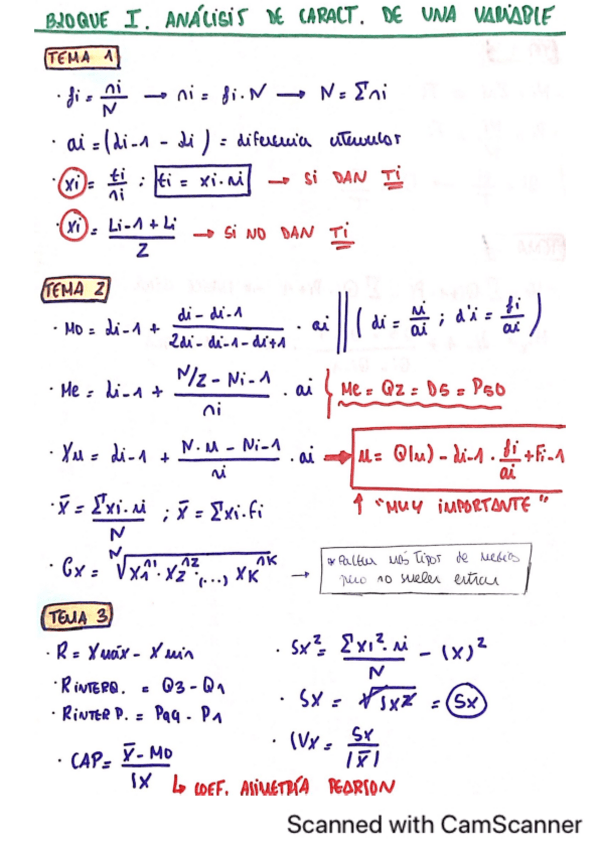 BLOQUE I. ANÁLISIS DE CARACT. DE UNA VARIABLE
TEMA 1
· fi = ni/N → ni = fi · N → N = Σni
· ai = (Li-1 - Li) = diferencia intervalor
· xi = ti/ni ; ti = xi · ni → SI DAN Ti
· xi = Li-1 + Li / 2 → SI NO DAN Ti
TEMA 2
· Mo = Li-1 + di - di-1 / 2di - di-1 - di+1 · ai || ( di = ni/ai ; d'i = fi/ai )
· Me = Li-1 + N/2 - Ni-1 / ni · ai { Me = Q2 = D5 = P50
· Xu = Li-1 + N · u - Ni-1 / ni · ai → u = Q(u) - Li-1 · fi/ai + Fi-1
↑ "MUY IMPORTANTE"
· x̄ = Σxi · ni / N ; x̄ = Σxi · fi
· Gx = N√x1^n1 · x2^n2 · (...), xK^nK → * Faltan más tipos de medias
pero no suelen entrar
TEMA 3
· R = Xmáx - Xmin
· RINTERQ. = Q3 - Q1
· RINTERP. = P99 - P1
· CAP = x̄ - Mo / Sx
↳ COEF. ASIMETRÍA PEARSON
· Sx² = Σxi² · ni / N - (x)²
· Sx = √Sx2 = Sx
· CVx = Sx / |x̄|
Scanned with CamScanner